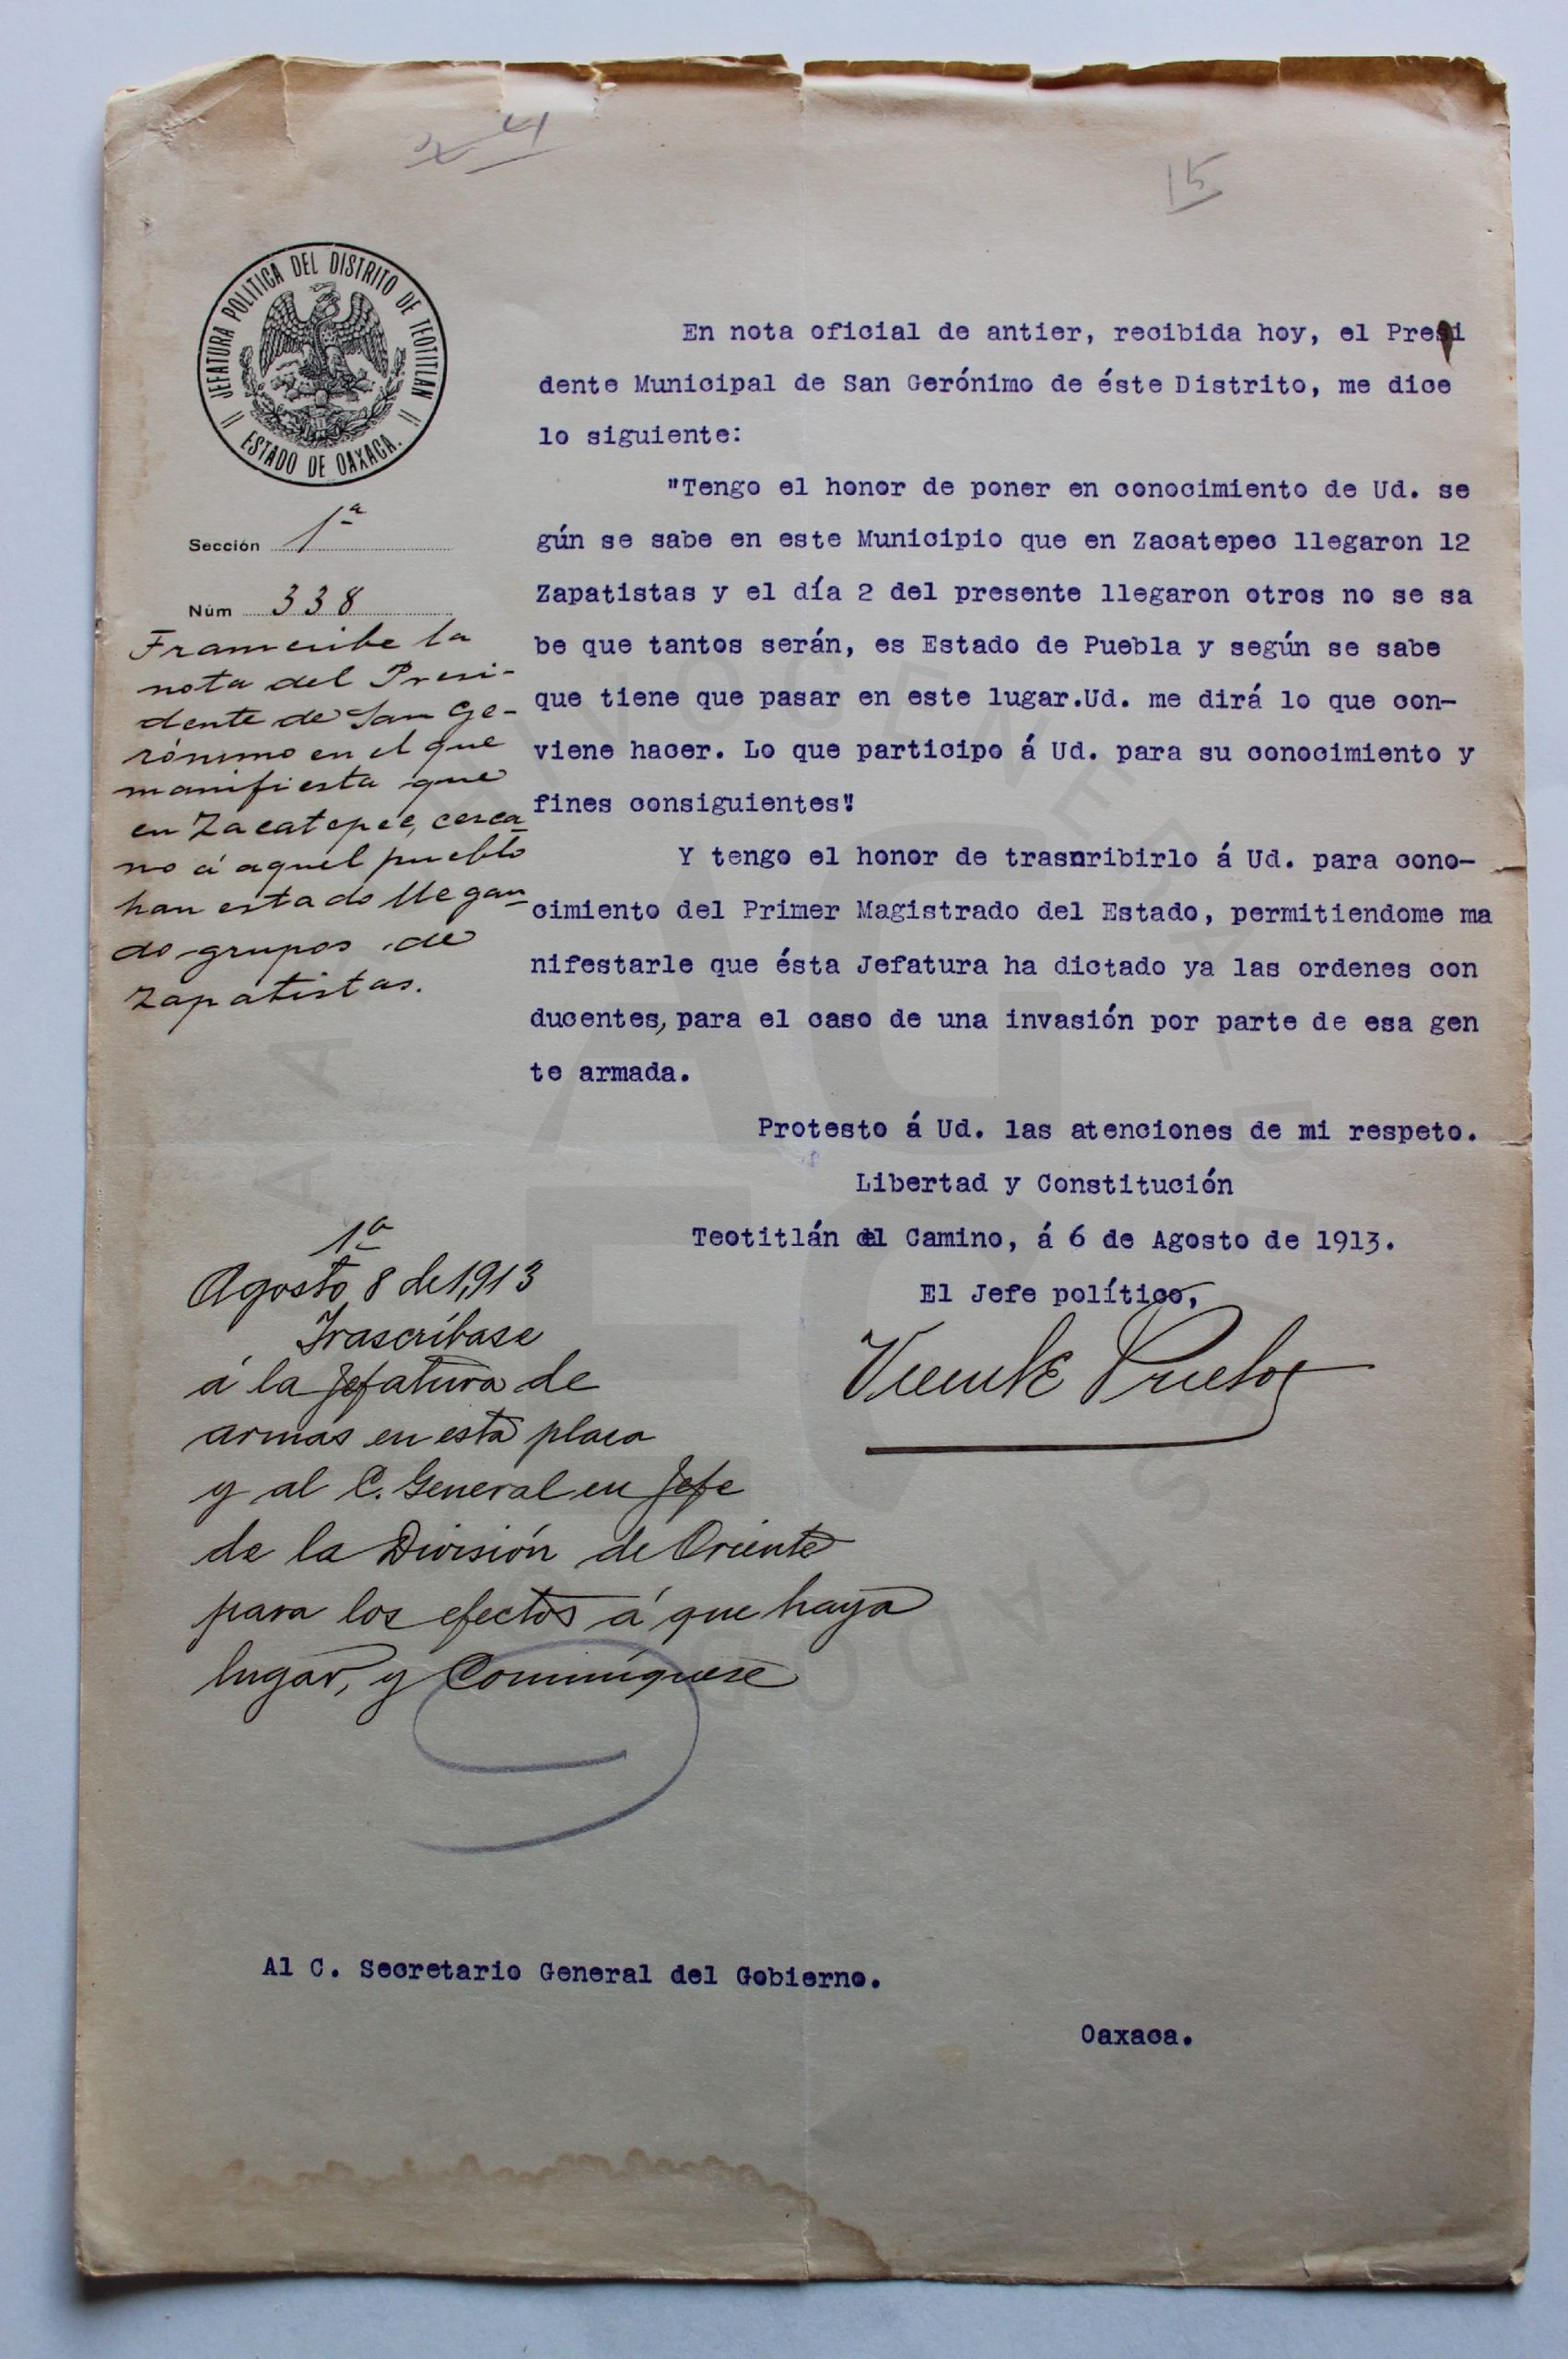 4
15
JEFATURA POLITICA DEL DISTRITO DE TEOTITLAN
ESTADO DE OAXACA.
Sección 1ª
Núm 338
Transcribe la
nota del Presi-
dente de San Ge-
rónimo en el que
manifiesta que
en Zacatepec, cerca-
no á aquel pueblo
han estado llegan-
do grupos de
Zapatistas.
En nota oficial de antier, recibida hoy, el Presi
dente Municipal de San Gerónimo de éste Distrito, me dice
lo siguiente:
"Tengo el honor de poner en conocimiento de Ud. se
gún se sabe en este Municipio que en Zacatepec llegaron 12
Zapatistas y el día 2 del presente llegaron otros no se sa
be que tantos serán, es Estado de Puebla y según se sabe
que tiene que pasar en este lugar.Ud. me dirá lo que con-
viene hacer. Lo que participo á Ud. para su conocimiento y
fines consiguientes"
Y tengo el honor de trasnribirlo á Ud. para cono-
cimiento del Primer Magistrado del Estado, permitiendome ma
nifestarle que ésta Jefatura ha dictado ya las ordenes con
ducentes, para el caso de una invasión por parte de esa gen
te armada.
Protesto á Ud. las atenciones de mi respeto.
Libertad y Constitución
Teotitlán del Camino, á 6 de Agosto de 1913.
El Jefe político,
Vicente Prieto
1ª
Agosto 8 de 1,913
Trascríbase
á la Jefatura de
armas en esta plaza
y al C. General en Jefe
de la División de Oriente
para los efectos á que haya
lugar, y Comuníquese
Al C. Secretario General del Gobierno.
Oaxaca.